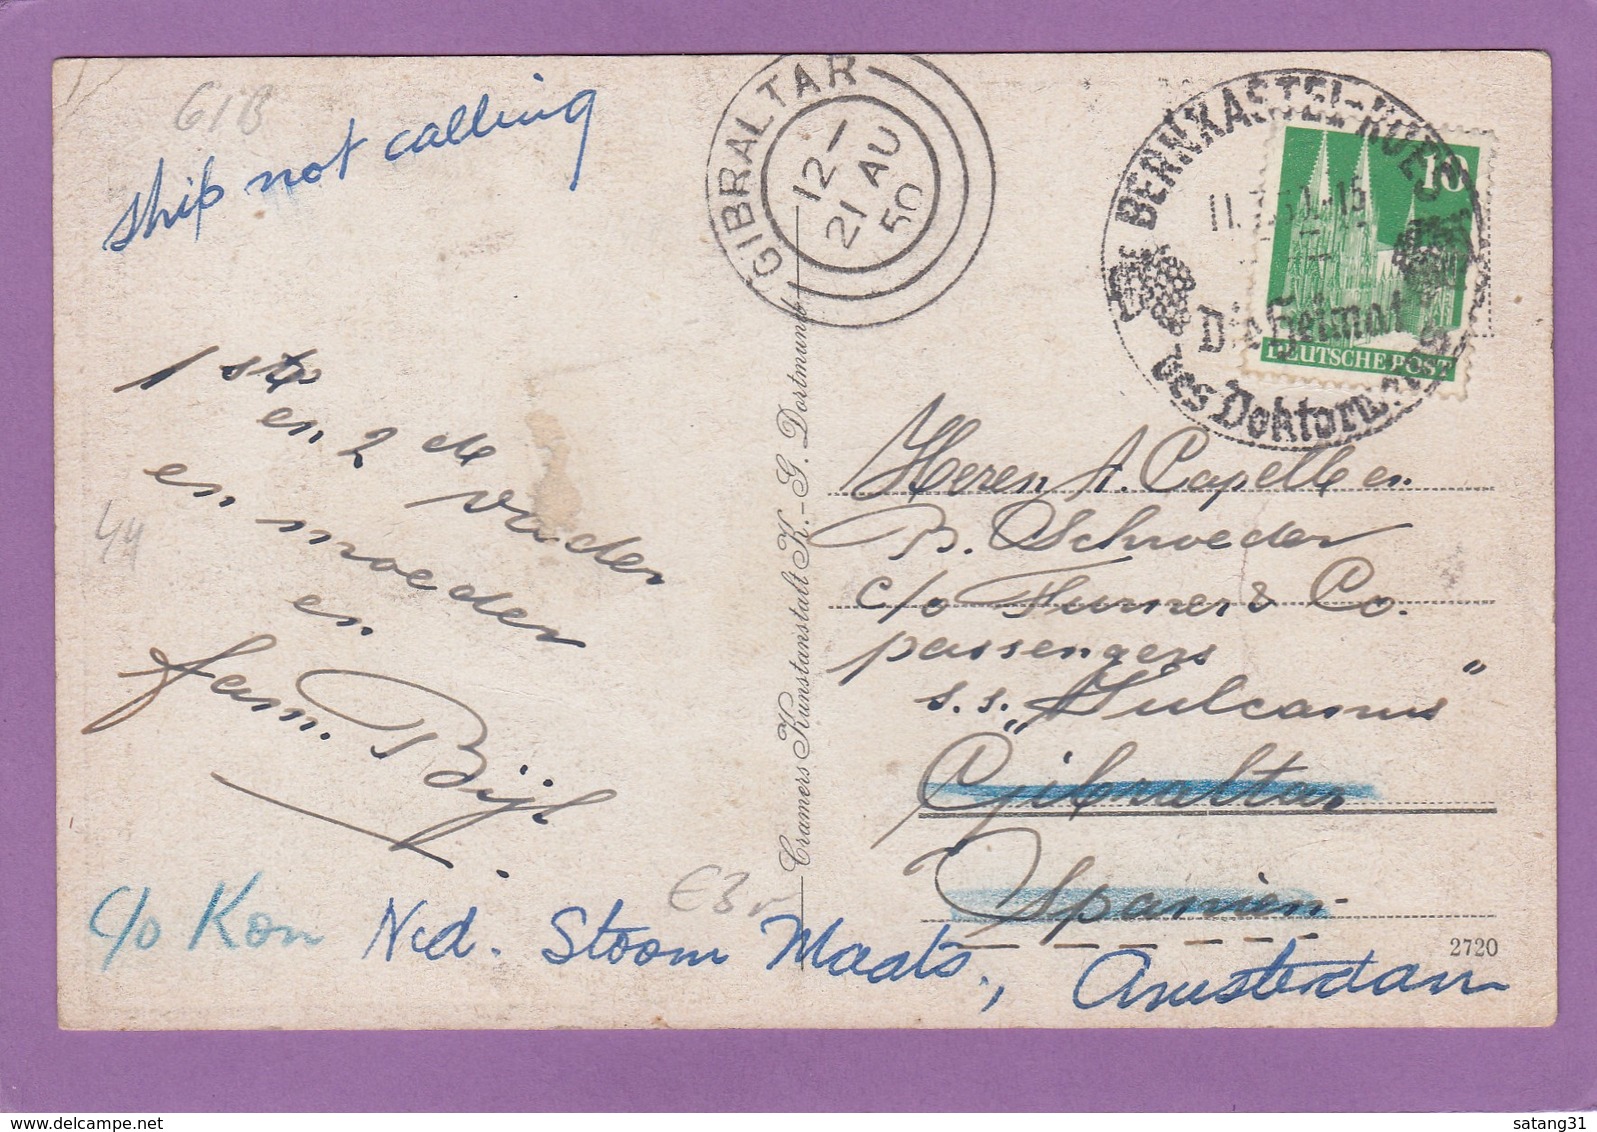 GIB
ship not calling
GIBRALTAR
12 -
21 AU
50
BERNKASTEL-KUES
Die Heimat
des Doktor
10
DEUTSCHE POST
1ste
en 2de
en vader
en moeder
en
fam. Bijl
44
Cramers Kunstanstalt K.-G. Dortmund
Heren A. Capelle en
B. Schroeder
c/o Turner & Co.
passengers
s.s. „Vulcanus"
Gibraltar
Spanien
€3,-
c/o Kon Ned. Stoom Maats., Amsterdam
2720
satang31